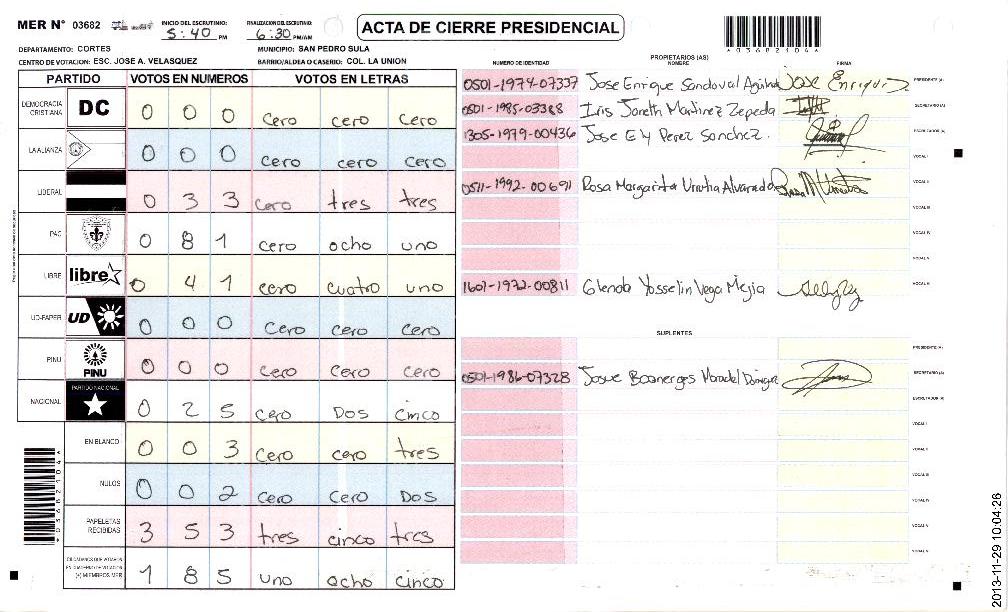 MER N° 03682
INICIO DEL ESCRUTINIO:
5:40 PM
FINALIZACION DEL ESCRUTINIO:
6:30 PM/AM
ACTA DE CIERRE PRESIDENCIAL
*0368210 4*
DEPARTAMENTO: CORTES
MUNICIPIO: SAN PEDRO SULA
CENTRO DE VOTACION: ESC. JOSE A. VELASQUEZ
BARRIO/ALDEA O CASERIO: COL. LA UNION
PARTIDO VOTOS EN NUMEROS VOTOS EN LETRAS
DEMOCRACIA CRISTIANA DC 0 0 0 cero cero cero
LA ALIANZA 0 0 0 cero cero cero
LIBERAL 0 3 3 cero tres tres
PAC 0 8 1 cero ocho uno
LIBRE libre 0 4 1 cero cuatro uno
UD-FAPER UD 0 0 0 cero cero cero
PINU PINU 0 0 0 cero cero cero
NACIONAL PARTIDO NACIONAL 0 2 5 cero Dos cinco
EN BLANCO 0 0 3 cero cero tres
NULOS 0 0 2 cero cero Dos
PAPELETAS RECIBIDAS 3 5 3 tres cinco tres
CIUDADANOS QUE VOTARON EN CUADERNO DE VOTACION (+) MIEMBROS MER 1 8 5 uno ocho cinco
PROPIETARIOS (AS)
NUMERO DE IDENTIDAD NOMBRE FIRMA
0501-1974-07337 Jose Enrique Sandoval Jose Enrique PRESIDENTE (A)
0501-1985-03388 Iris Janeth Martinez Zepeda SECRETARIO (A)
1305-1979-00436 Jose Ely Perez Sanchez. ESCRUTADOR (A)
VOCAL I
0511-1992-00691 Rosa Margarita Urutia Alvarado VOCAL II
VOCAL III
VOCAL IV
VOCAL V
1601-1972-00811 Glenda Yosselin Vega Mejia VOCAL VI
SUPLENTES
PRESIDENTE (A)
0501-1986-07328 Josue Boanerges SECRETARIO (A)
ESCRUTADOR (A)
VOCAL I
VOCAL II
VOCAL III
VOCAL IV
VOCAL V
VOCAL VI
2013-11-29 10:04:26